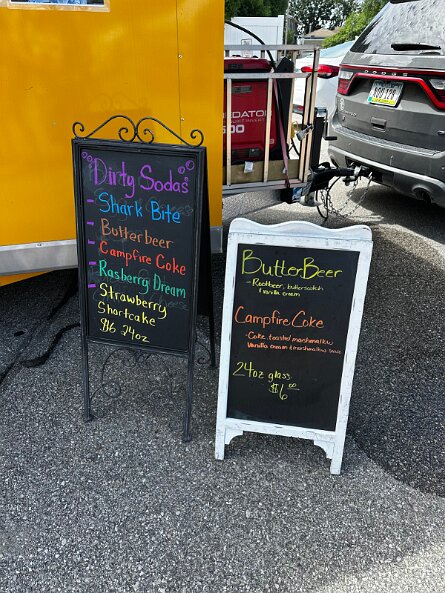 Dirty Sodas
- Shark Bite
- Butterbeer
- Campfire Coke
- Rasberry Dream
- Strawberry
Shortcake
$6 24oz
ButterBeer
- Rootbeer, butterscotch
& vanilla cream
Campfire Coke
- Coke, toasted marshmallow
Vanilla cream & marshmallow
24oz glass
$6.00
PREDATOR
DODGE